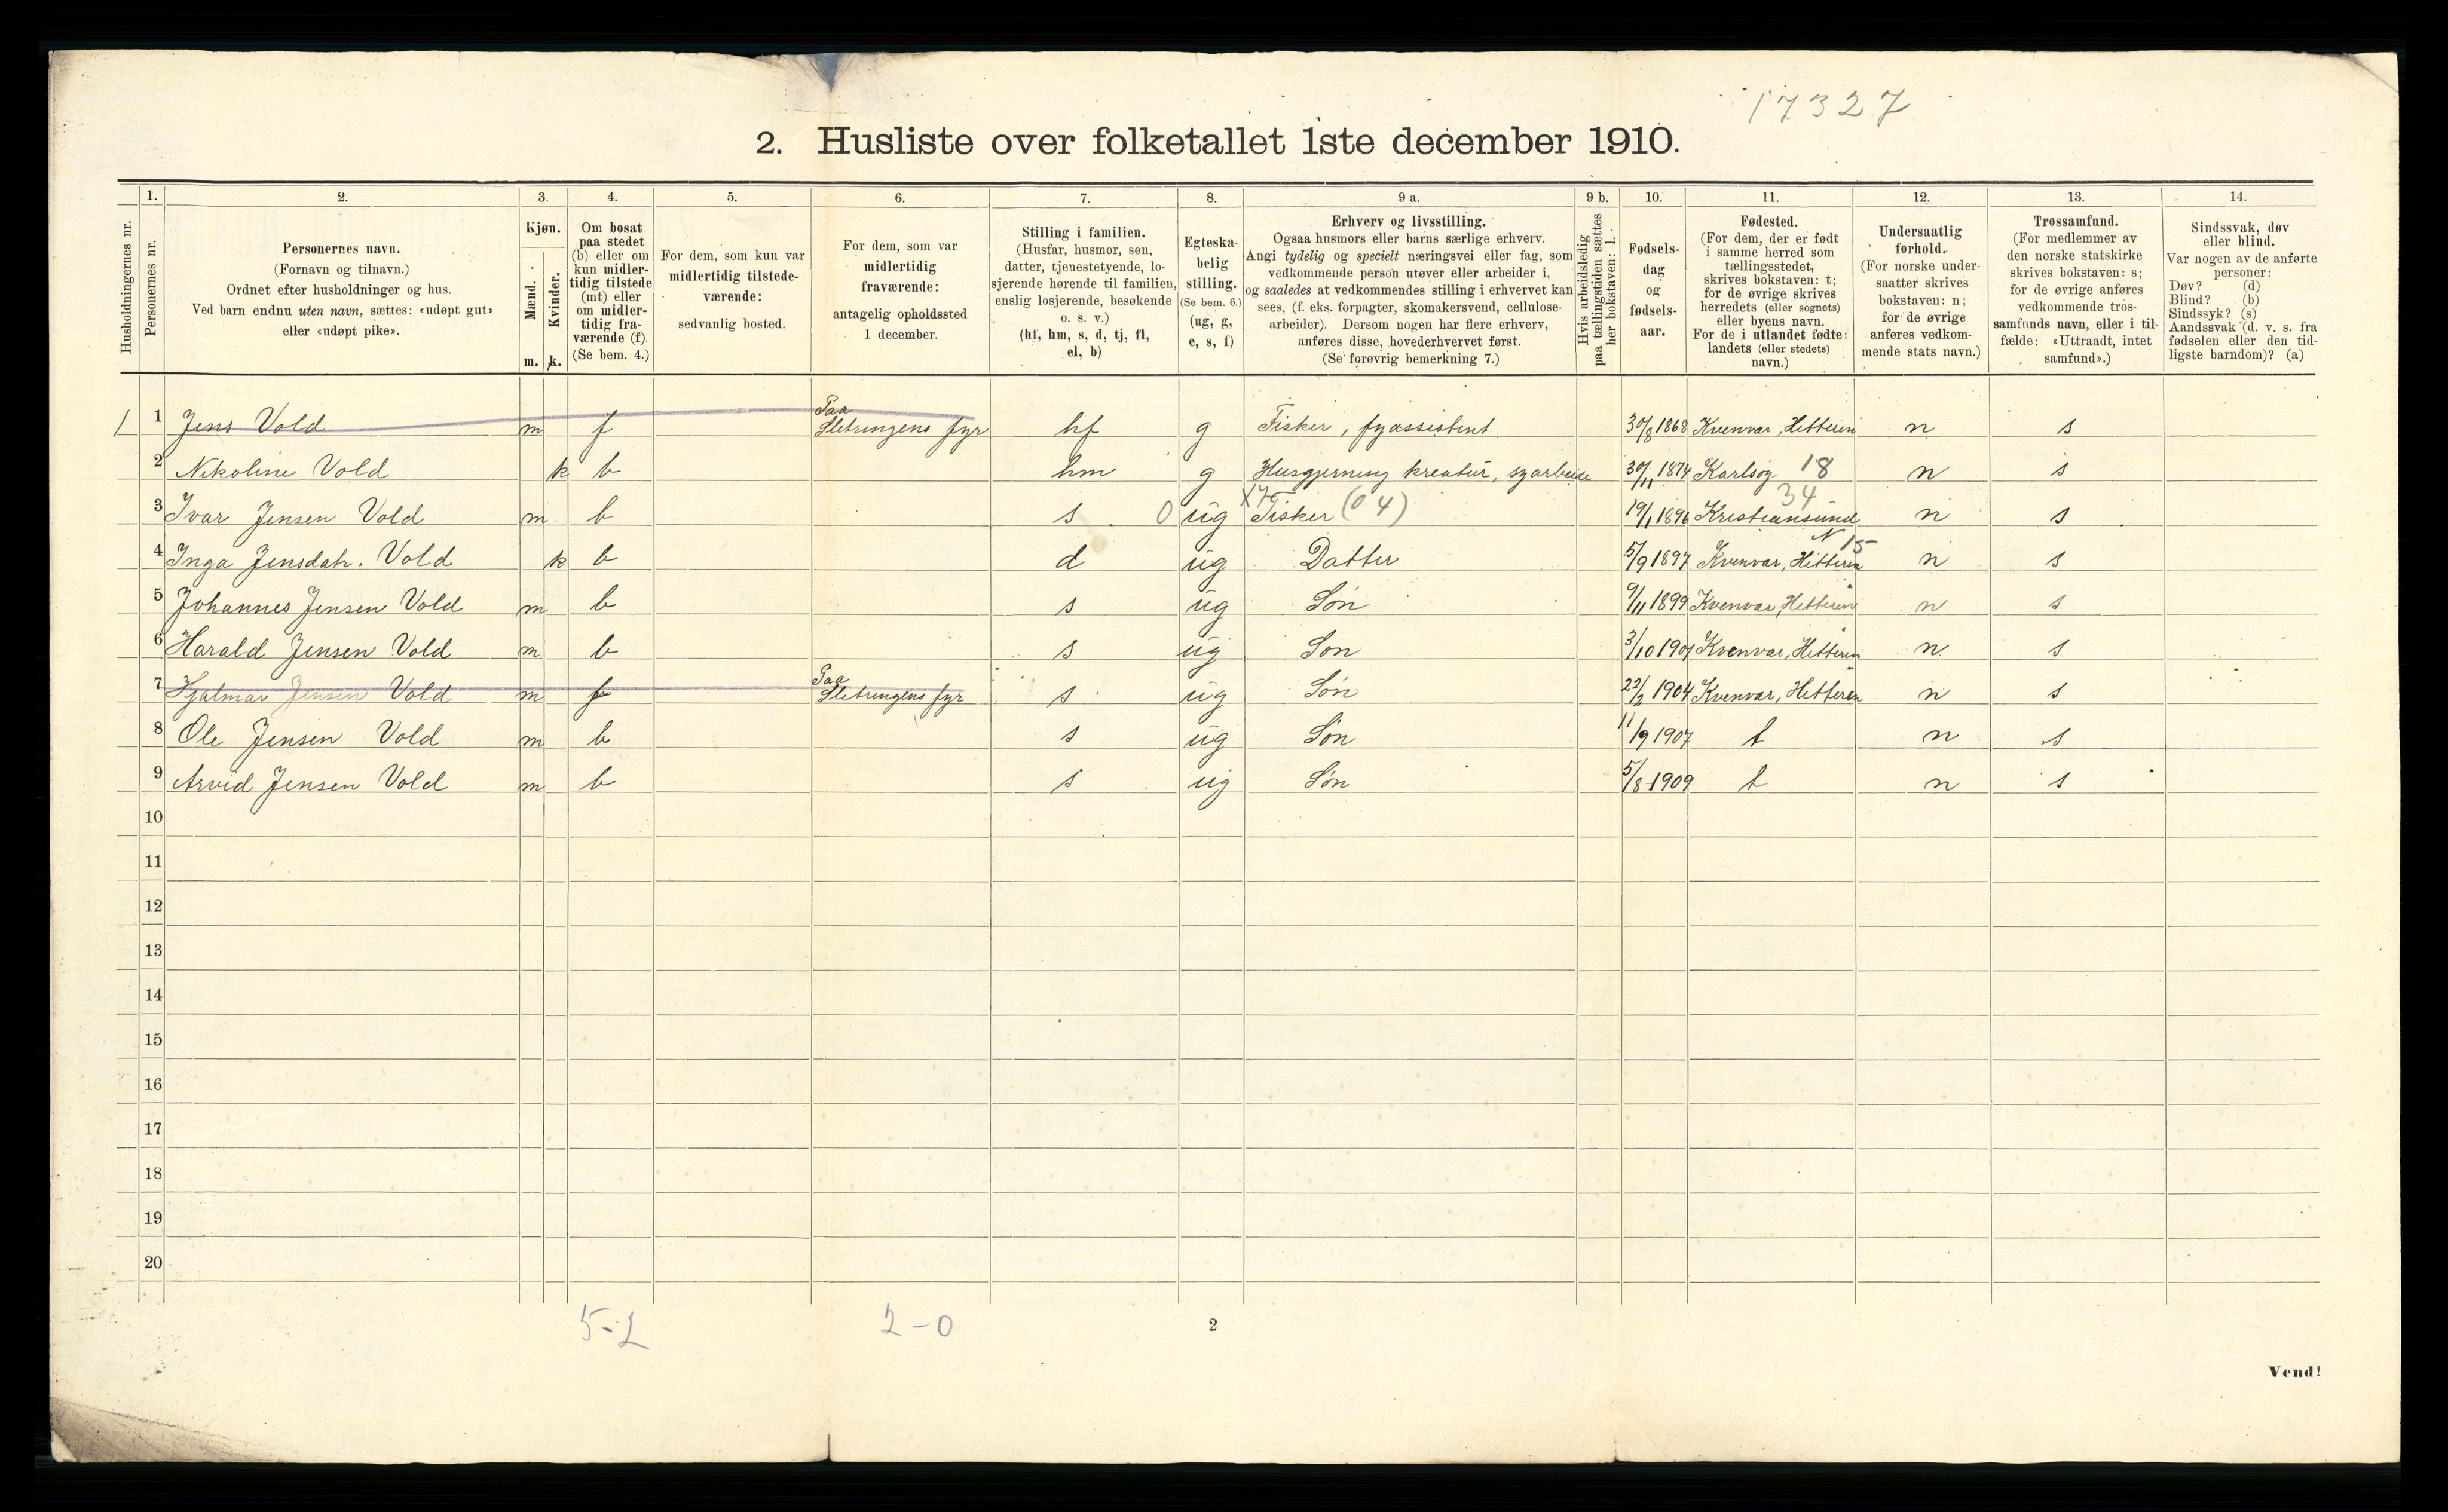 17327
2. Husliste over folketallet 1ste december 1910.
Husholdningernes nr.
1.
Personernes nr.
2.
Personernes navn.
(Fornavn og tilnavn.)
Ordnet efter husholdninger og hus.
Ved barn endnu uten navn, sættes: «udøpt gut»
eller «udøpt pike».
3.
Kjøn.
Mænd.
Kvinder.
m. k.
4.
Om bosat
paa stedet
(b) eller om
kun midler-
tidig tilstede
(mt) eller
om midler-
tidig fra-
værende (f).
(Se bem. 4.)
5.
For dem, som kun var
midlertidig tilstede-
værende:
sedvanlig bosted.
6.
For dem, som var
midlertidig
fraværende:
antagelig opholdssted
1 december.
7.
Stilling i familien.
(Husfar, husmor, søn,
datter, tjenestetyende, lo-
sjerende hørende til familien,
enslig losjerende, besøkende
o. s. v.)
(hf, hm, s, d, tj, fl,
el, b)
8.
Egteska-
belig
stilling.
(Se bem. 6.)
(ug, g,
e, s, f)
9 a.
Erhverv og livsstilling.
Ogsaa husmors eller barns særlige erhverv.
Angi tydelig og specielt næringsvei eller fag, som
vedkommende person utøver eller arbeider i,
og saaledes at vedkommendes stilling i erhvervet kan
sees, (f. eks. forpagter, skomakersvend, cellulose-
arbeider). Dersom nogen har flere erhverv,
anføres disse, hovederhvervet først.
(Se forøvrig bemerkning 7.)
9 b.
Hvis arbeidsledig
paa tællingstiden sættes
her bokstaven: l.
10.
Fødsels-
dag
og
fødsels-
aar.
11.
Fødested.
(For dem, der er født
i samme herred som
tællingsstedet,
skrives bokstaven: t;
for de øvrige skrives
herredets (eller sognets)
eller byens navn.
For de i utlandet fødte:
landets (eller stedets)
navn.)
12.
Undersaatlig
forhold.
(For norske under-
saatter skrives
bokstaven: n;
for de øvrige
anføres vedkom-
mende stats navn.)
13.
Trossamfund.
(For medlemmer av
den norske statskirke
skrives bokstaven: s;
for de øvrige anføres
vedkommende tros-
samfunds navn, eller i til-
fælde: «Uttraadt, intet
samfund».)
14.
Sindssvak, døv
eller blind.
Var nogen av de anførte
personer:
Døv? (d)
Blind? (b)
Sindssyk? (s)
Aandssvak (d. v. s. fra
fødselen eller den tid-
ligste barndom)? (a)
1 1 Jens Vold m f Paa Sletringens fyr hf g Fisker, fyassistent 30/8 1868 Kvenvar, Hitteren n s
2 Nikoline Vold k b hm g Husgjerning kreatur, syarbeide 30/11 1874 Karlsøy 18 n s
3 Ivar Jensen Vold m b s 0 ug Fisker (04) 19/1 1896 Kristiansund N 34 n s
4 Inga Jensdatr. Vold k b d ug Datter 5/9 1897 Kvenvar, Hitteren 15 n s
5 Johannes Jensen Vold m b s ug Søn 9/11 1899 Kvenvar, Hitteren n s
6 Harald Jensen Vold m b s ug Søn 3/10 1901 Kvenvar, Hitteren n s
7 Hjalmar Jensen Vold m f Paa Sletringens fyr s ug Søn 22/2 1904 Kvenvar, Hitteren n s
8 Ole Jensen Vold m b s ug Søn 11/9 1907 t n s
9 Arvid Jensen Vold m b s ug Søn 5/8 1909 t n s
10
11
12
13
14
15
16
17
18
19
20
5-2 2-0
2
Vend!